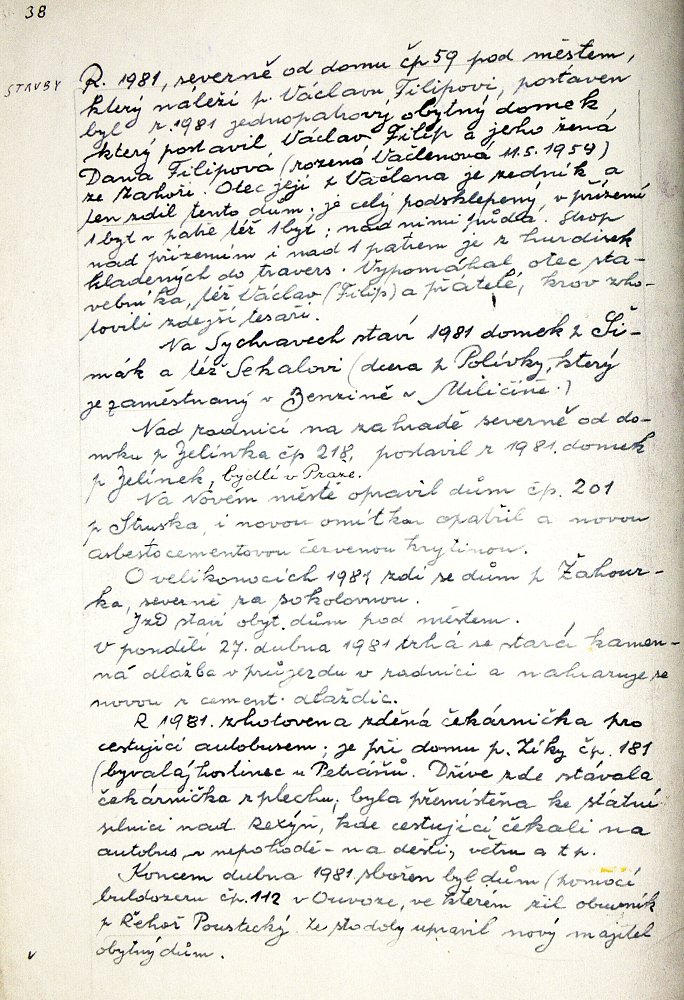 38
STAVBY
R. 1981, severně od domu čp 59 pod městem,
který náleží p. Václavu Filipovi, postaven
byl r. 1981 jednopatrový obytný domek,
který postavil Václav Filip a jeho žena
Dana Filipová (rozená Vačlenová 11.5.1959)
ze Zahoří. Otec její p Vačlena je zedník a
ten zdil tento dům; je celý podsklepený, v přízemí
1 byt v patře též 1 byt; nad nimi půda. Strop
nad přízemím i nad 1 patrem je z hurdisek
kladených do travers. Vypomáhal otec sta-
vebníka, též Václav (Filip) a přátelé, krov zho-
tovili zdejší tesaři.
Na Sychravech staví 1981 domek p Ši-
mák a též Sekalovi (dcera p Polívky, který
je zaměstnaný v Benzině v Miličíně.)
Nad radnicí na zahradě severně od do-
mku p Zelínka čp 218, postavil r 1981. domek
p Zelínek, bydlí v Praze.
Na Novém městě opravil dům čp. 201
p Struska, i novou omítkou opatřil a novou
asbestocementovou červenou krytinou.
O velikonocích 1981 zdi se dům p Žahour-
ka, severně za sokolovnou.
Jzd staví obyt. dům pod městem.
V pondělí 27. dubna 1981 trhá se stará kamen-
ná dlažba v průjezdu v radnici a nahrazuje se
novou z cement. dlaždic.
R 1981. zhotovena zděná čekárnička pro
cestující autobusem; je při domu p. Ziky čp. 181
(bývalý hostinec u Petráňů. Dříve zde stávala
čekárnička z plechu; byla přemístěna ke státní
silnici nad Rexýn, kde cestující čekali na
autobus v nepohodě - na dešti, větru a t p.
Koncem dubna 1981 sbořen byl dům (pomocí
buldozeru čp. 112 v Ouvoze, ve kterém žil obuvník
p Řehoř Poustecký. Ze stodoly upravil nový majitel
obytný dům.
v